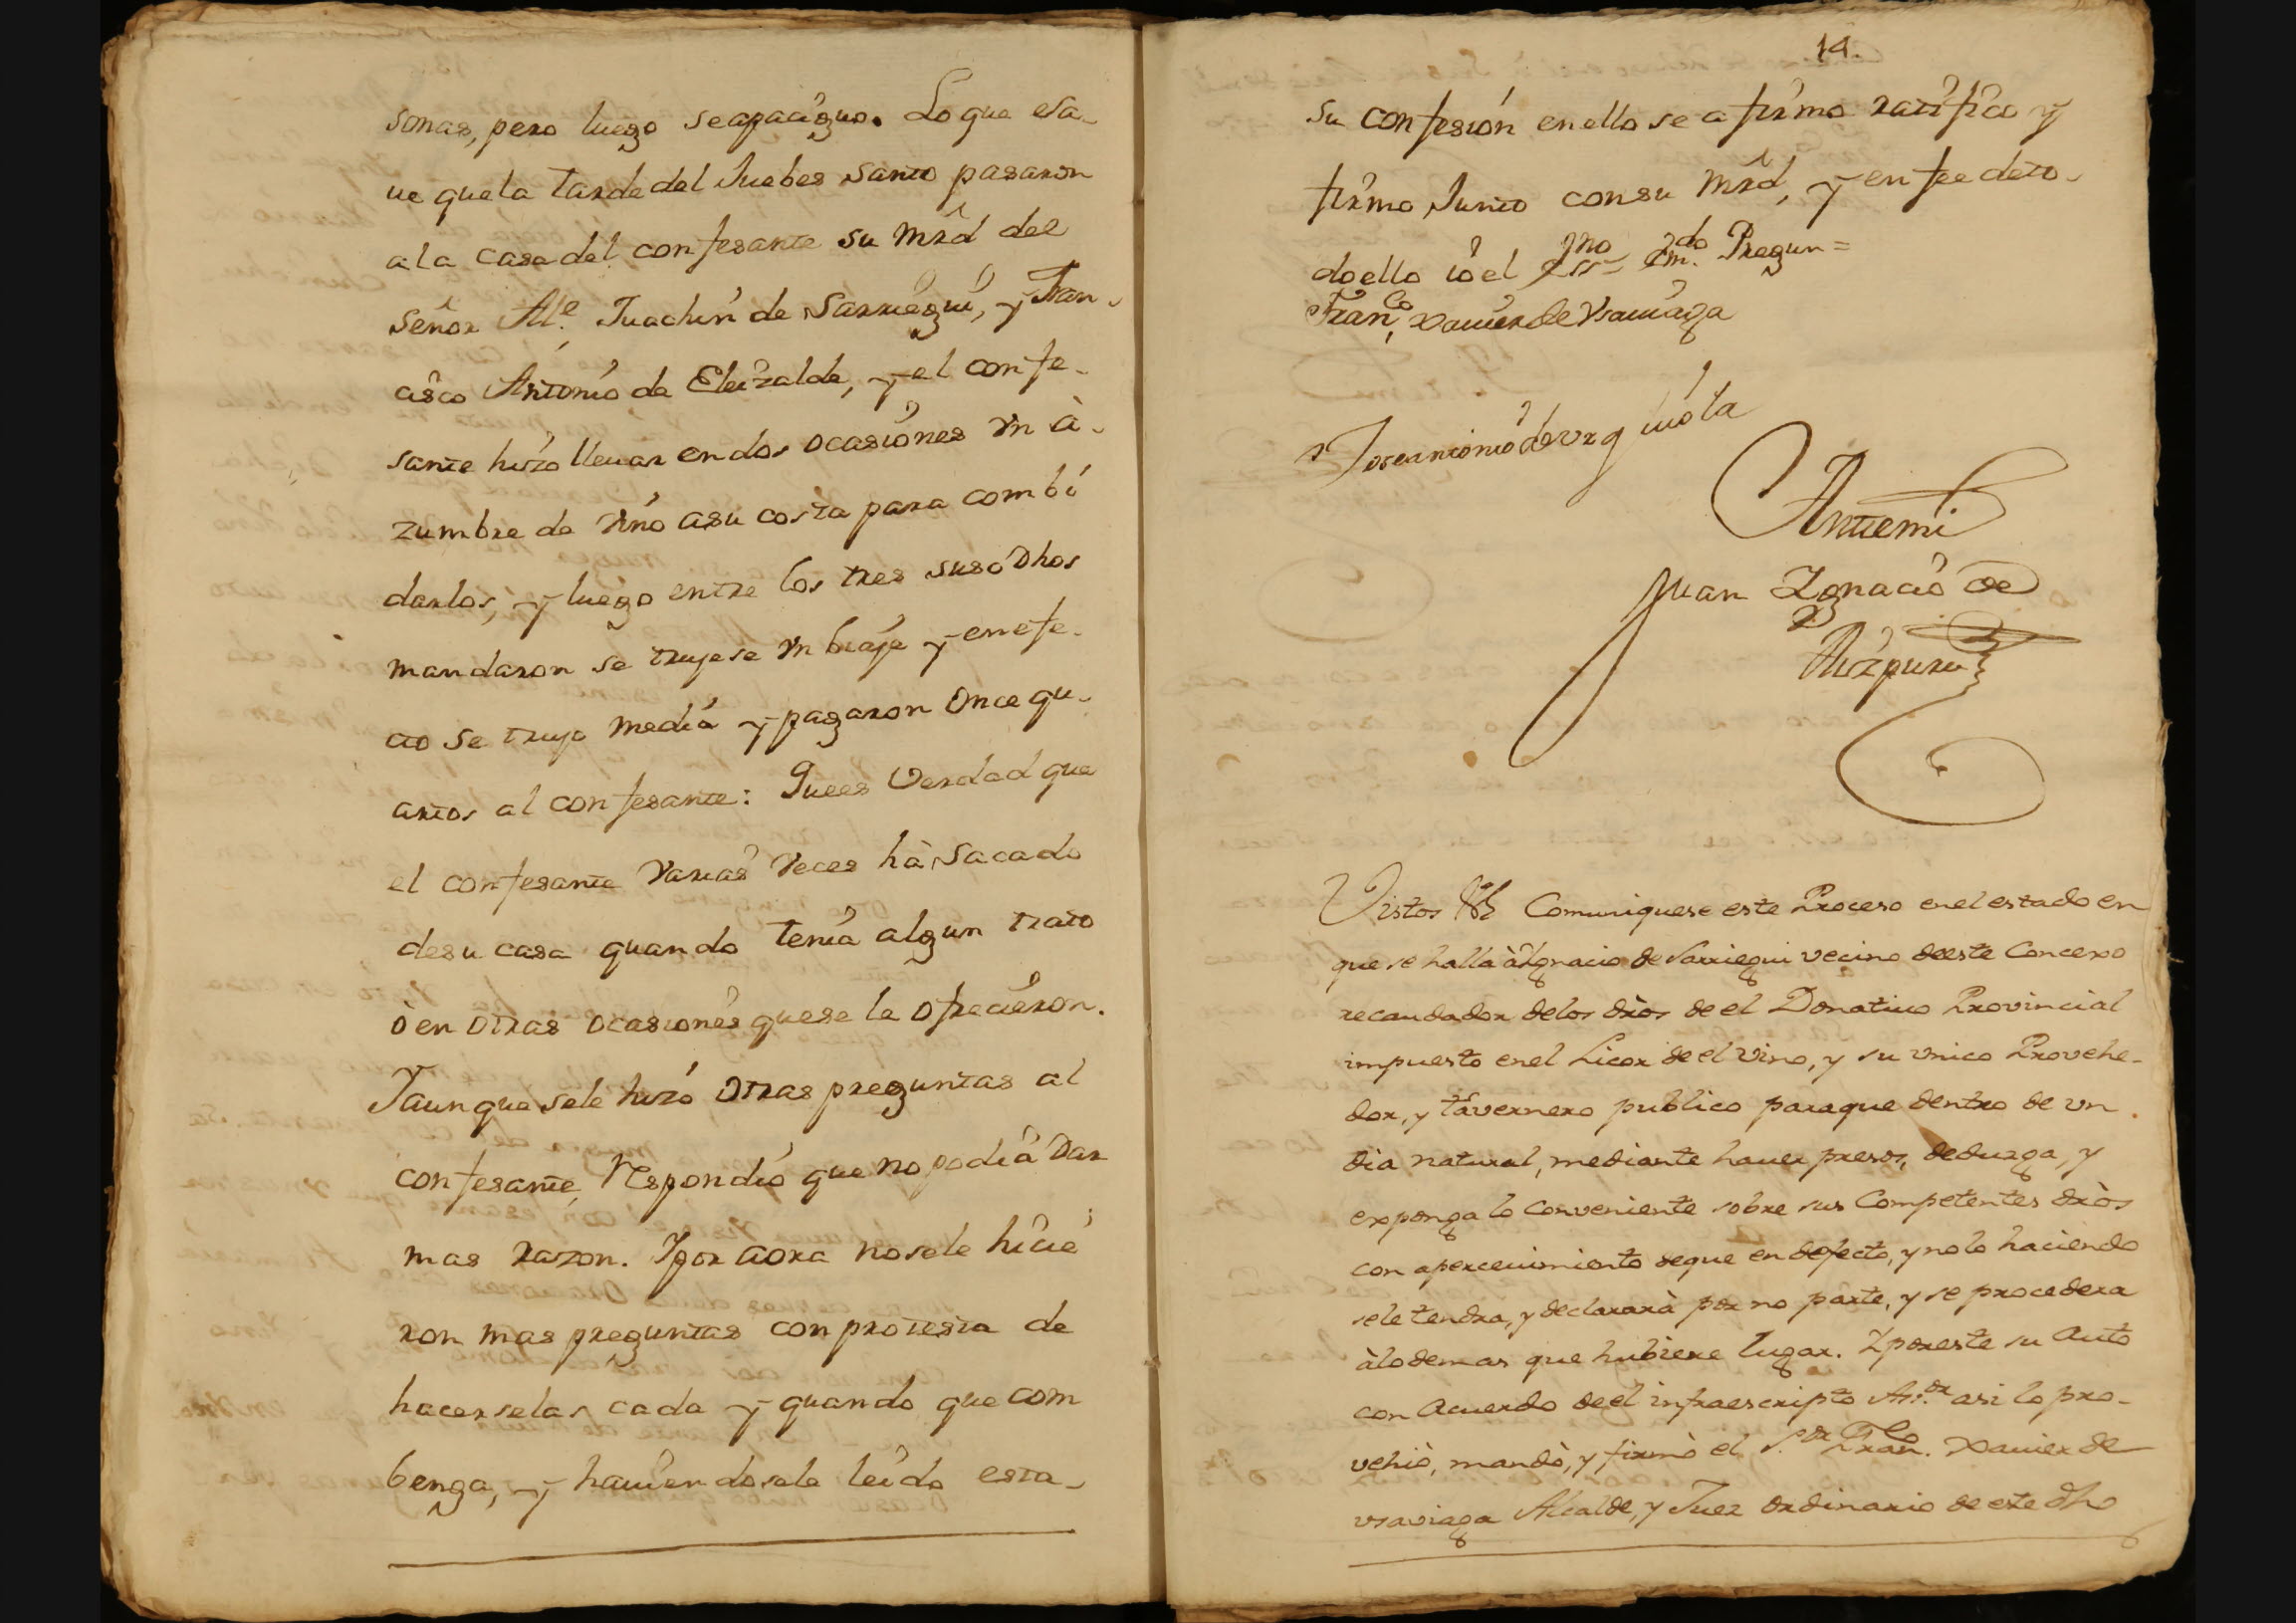 sonas, pero luego seapaciguo. Lo que esta-
ue que la tarde del Juebes santo pasaron
ala casa del confesante su mrd del
señor Alᵉ. Juachin de Sarriegui, y Fran-
cisco Antonio de Eleizalde, y el confe-
sante hizo lleuar en dos ocasiones vn à-
zumbre de vino asu costa para combi
darlos, y luego entre los tres susodhos
mandaron se trujese vn biaje y en efe-
cto se trujo media y pagaron once qu-
artos al confesante: Quees verdad que
el confesante varias veces hà sacado
desu casa quando tenia algun trato
ò en otras ocasiones quese le ofrecieron.
Yaunque sele hizo otras preguntas al
confesante, respondio que no podia dar
mas razon. Ypor aora nosele hicie
ron mas preguntas con protesta de
hacerselas cada y quando que com
benga, y hauiendosele leido esta-
14.
su confesion en ello se afirmo ratifico y
firmo Junto con su mrd, y en fee deto-
doello io el Essⁿᵒ Pregun=
Franᶜᵒ Xauier de Vsauiaga
Joseantonio de Vrquiola
Antemi
Juan Ignacio de
Aizpuru
Vistos &ᵃ Comuniquese este Proceso enel estado en
que se halla à Ignacio de Sarriegui vecino deeste Concexo
recaudador delos dros de el Donatiuo Provincial
impuesto enel Licor de el vino, y su vnico Provehe-
dor, y tavernero publico paraque dentro de vn
dia natural, mediante hauer presos, deduzga, y
exponga lo conveniente sobre sus Competentes dròs
con apercevimiento deque en defecto, y no lo haciendo
sele tendra, y declararà por no parte, y se procedera
àlodemas que hubiere lugar. Yporeste su Auto
con acuerdo deel infraescripto Asᵒʳ. asi lo pro-
vehiò, mandò, y firmò el S.ᵒʳ Franᶜᵒ. Xauier de
vsaviaga Alcalde, y Juez ordinario de este dho